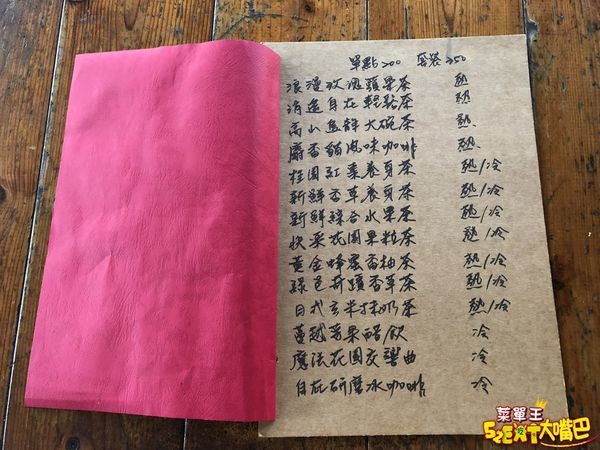 單點200 套餐350
浪漫玫瑰蘋果茶 熱
逍遙自在輕鬆茶 熱
高山烏龍大碗茶 熱
麝香貓風味咖啡 熱
桂圓紅棗養身茶 熱/冷
新鮮香草養身茶 熱/冷
新鮮綜合水果茶 熱/冷
快樂花園果粒茶 熱/冷
黃金蜂蜜香柚茶 熱/冷
綠色奇蹟香草茶 熱/冷
日式玄米抹奶茶 熱/冷
蔓越莓果醋飲 冷
魔法花園交響曲 冷
自在研磨冰咖啡 冷
菜單王
52EAT大嘴巴